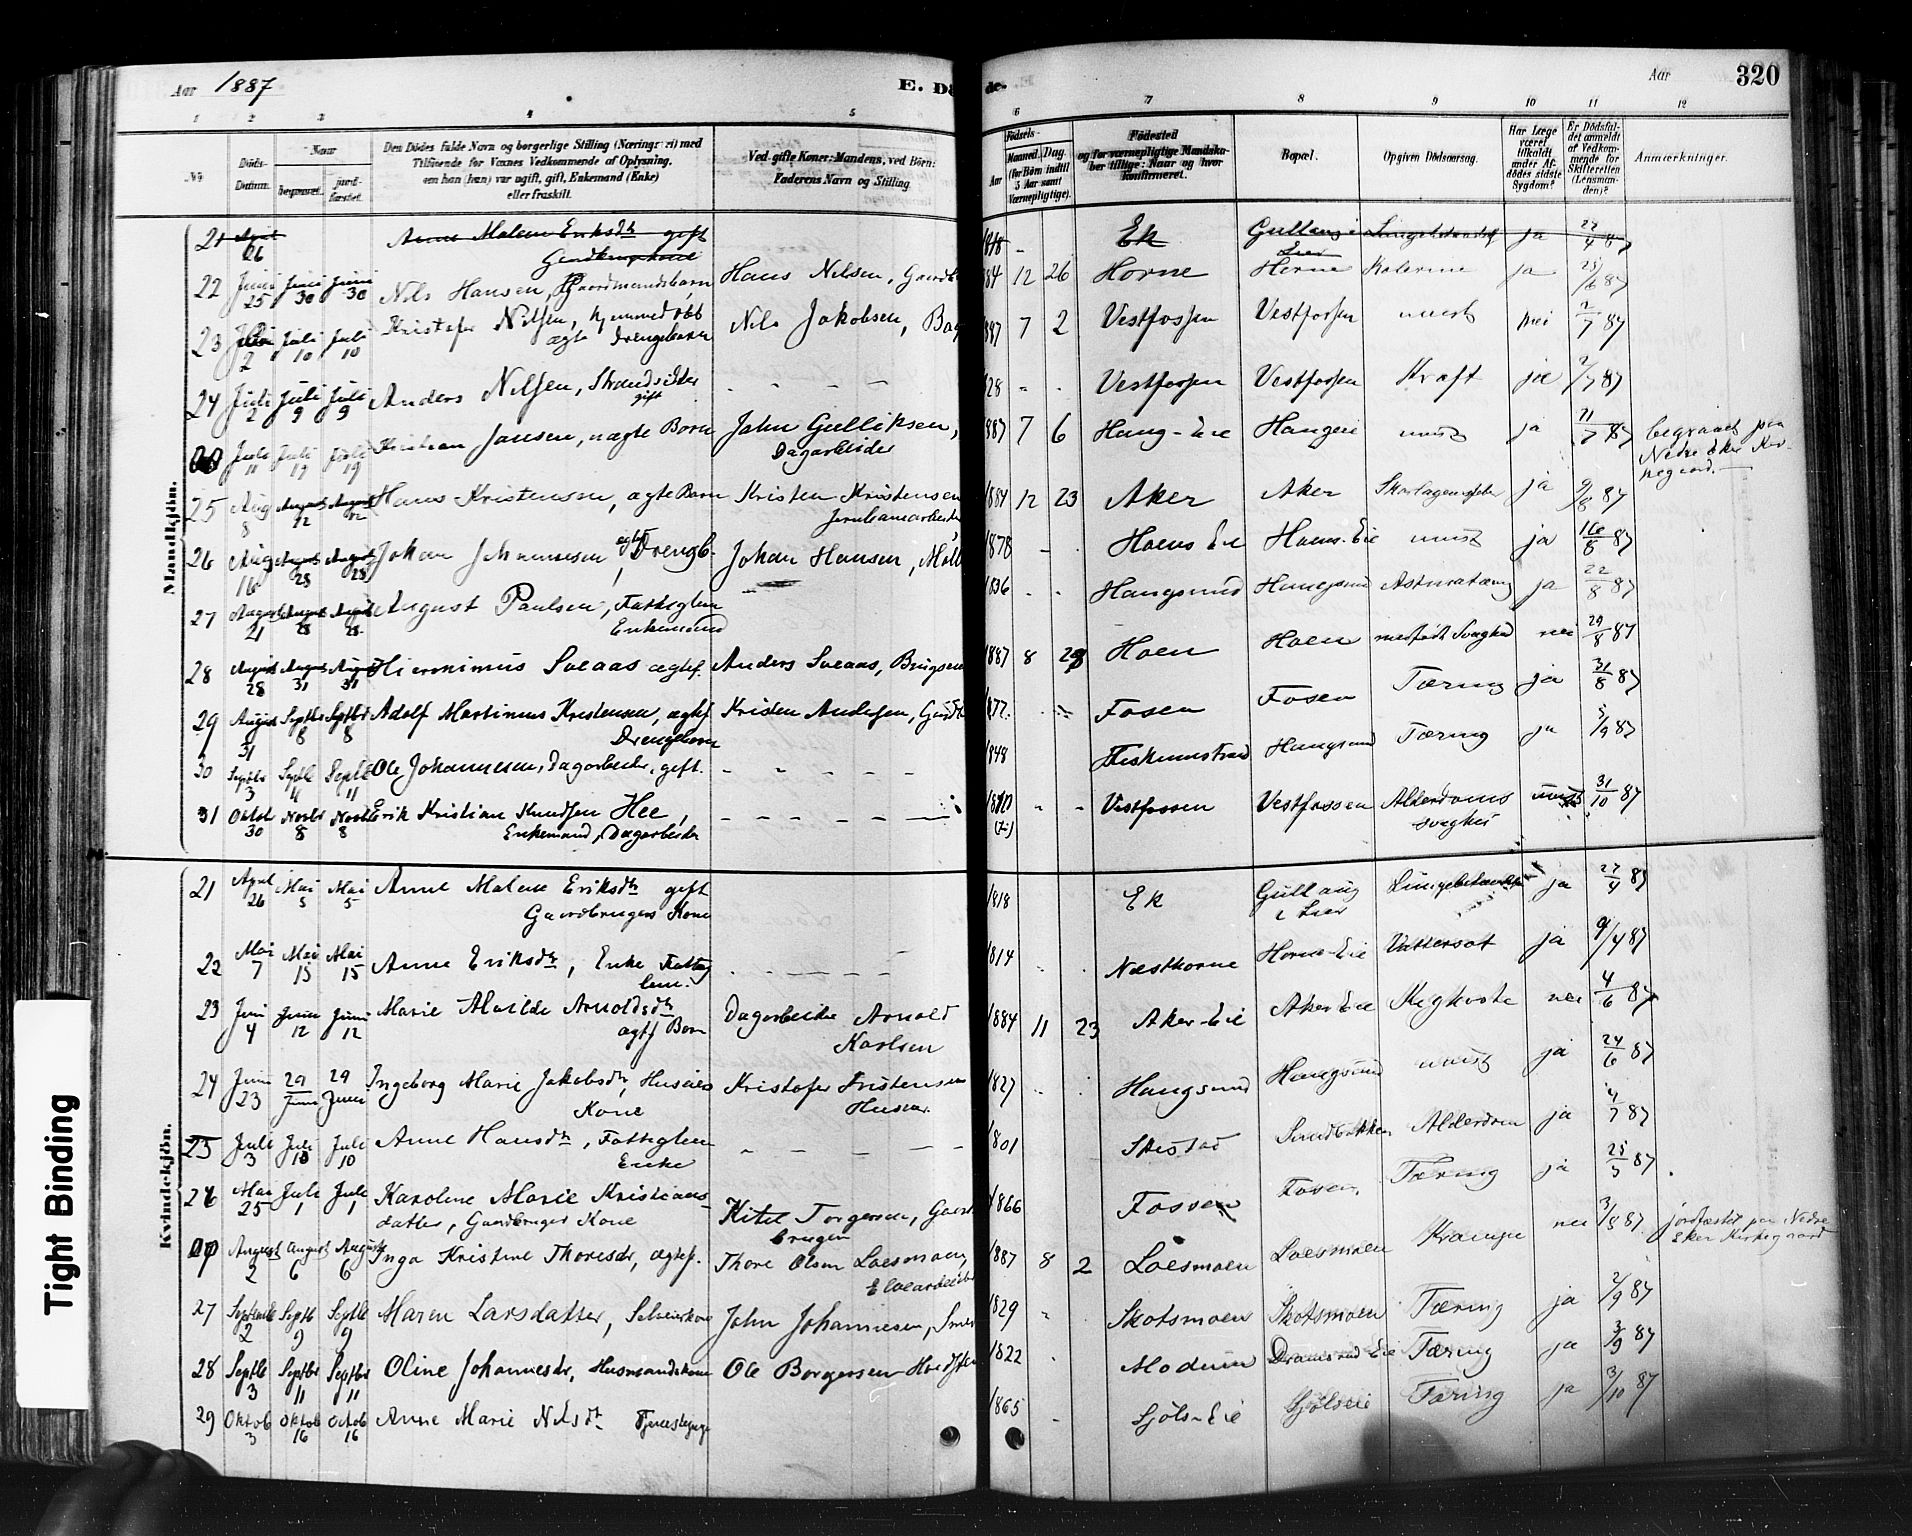 Aar 1887
E. Dø
de.
Aar 320
1 2 3 4 5 6 7 8 9 10 11 12
No
Døds-
Datum.
Naar
begravet.
jord-
fæstet.
Den Dødes fulde Navn og borgerlige Stilling (Nærings vei) med
Tilføiende for Voxnes Vedkommende af Oplysning,
om han (hun) var ugift, gift, Enkemand (Enke)
eller fraskilt.
Ved gifte Koner: Mandens, ved Børn:
Faderens Navn og Stilling
Fødsels-
Aar
Maaned. Dag.
(for Børn indtil
5 Aar samt
Værnepligtige).
Fødested
og for værnepligtige Mandska-
ber tillige: Naar og hvor
konfirmeret.
Bopæl.
Opgiven Dødsaarsag.
Har Læge
været
tilkaldt
under Af-
dødes sidste
Sygdom?
Er Dødsfal-
det anmeldt
af Vedkom-
mende for
Skifteretten
(Lensman-
den)?
Anmærkninger.
Mandkjön.
21 April 26 Anne Malene Eriksdtr gift 1818 - Ek Gullaug i Lier ja 27/4 87
22 Juni 25 Juni 30 Juni 30 Nils Hansen, Gaardmandsbarn Hans Nilsen, 84 12 26 Horne Horne ja 25/6 87
23 Juli 2 Juli 10 Juli 10 Kristofer Nilsen, hjemmedøbt
ægte Drengebarn Nils Jakobsen, 887 7 2 Vestfossen Vestfossen nei 2/7 87
24 Juli 2 Juli 9 Juli 9 Anders Nilsen, Strandsidder
gift - - - - 828 Vestfossen Vestfossen Kræft ja 2/7 87
Juli 11 Juli 17 Juli 19 Kristian Jansen, uægte Barn John Gulliksen,
Dagarbeider 887 7 6 Haug-Eie Haugeie ja 11/7 87 begravet paa
Nedre Eker Kir-
kegaard.
25 Aug 8 August 12 August 12 Hans Kristensen, ægte Barn Kristen Kristensen 1884 12 23 Aker Aker ja 9/8 87
26 Aug 16 August 28 August 28 Johan Johannesen, ægte Drengb. Johan Hansen, 1878 - Hoens Eie Hoens-Eie ja 16/8 87
27 August 21 August 28 August 28 August Paulsen, Fattiglem
Enkemand 1836 Haugsund Haugsund ja 22/8 87
28 August 28 August 31 August 31 Hieronimus Svaas ægtef. Anders Svaas, 1887 8 28 Hoen Hoen medfødt Svaghed nei 29/8 87
29 August 31 Septbr 8 Septbr 8 Adolf Martinus Kristensen, ægtef.
Drengebarn Kristen Andersen, 1877 Fosen Fosen Tæring ja 31/8 87
30 Septbr 3 Septb 11 Septb 11 Ole Johannesen, Dagarbeider, gift. - - - - - 1848 Haugsund Tæring ja 3/9 87
31 Oktob 30 Novbr 8 Novb 8 Erik Kristian Knudsen Hee,
Enkemand, Dagarbeider - - - - - Vestfossen Vestfossen Alderdoms
svaghed 31/10 87
Kvindekjön.
21 April 26 Mai 5 Mai 5 Anne Malene Eriksdtr gift
Gaardbrugers Kone 1818 Ek Gullaug
i Lier Lungebetændelse ja 27/4 87
22 Mai 7 Mai 15 Mai 15 Anne Eriksdtr, Enke Fattig
lem. - - - - - 1814 Næsthorne Horne-Eie Vattersot ja
23 Juni 4 Juni 12 Juni 12 Marie Matilde Arnoldsdtr
ægtf Barn Dagarbeider Arnold
Karlsen 1884 11 23 Aker-Eie Aker Eie Kighoste nei 4/6 87
24 Juni 23 29 Juni 29 Juni Ingeborg Marie Jakobsdtr, Husmands
Kone Kristofer Kristensen 1827 Haugsund Haugsund ja 24/6 87
25 Juli 3 Juli 10 Juli 10 Anne Hansdtr, Fattiglem
Enke - - - - - 1801 Skistad Sandbakken Alderdom ja 4/7 87
26 Mai 25 Juli 1 Juli 1 Karoline Marie Kristians-
datter, Gaardbruger Kone Kitel Torgersen, Gaard
brugen 1866 Fossen Fosen. Tæring ja 25/5 87
August 2 August 6 August 6 Inga Kristine Thoresdtr, ægtef. Thore Olsen Loesmoen, 1887 8 2 Loesmoen Loesmoen Krampe nei 3/8 87 jordfæstet paa Nedre
Eker Kirkegaard
27 Septemb 2 Septb 9 Septb 9 Maren Larsdatter, John Johannesen, 1829 Skotsmoen Skotsmoen Tæring ja 2/9 87
28 Septb 3 Septbr 11 Septbr 11 Oline Johannesdr, Husmandskone Ole Borgersen 1822 Modum Tæring ja 3/9 87
29 Oktob 3 Oktob 16 Octob 16 Anne Marie Nilsdtr Tjenestepige 1865 - Sjöls-Eie Sjölseie Tæring ja 3/10 87
Tight Binding